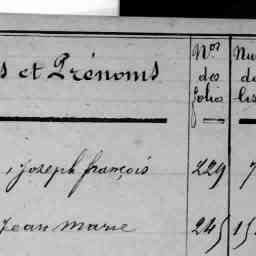 s et Prénoms
Nos des folio
Joseph françois 229 7
Jean Marie 245